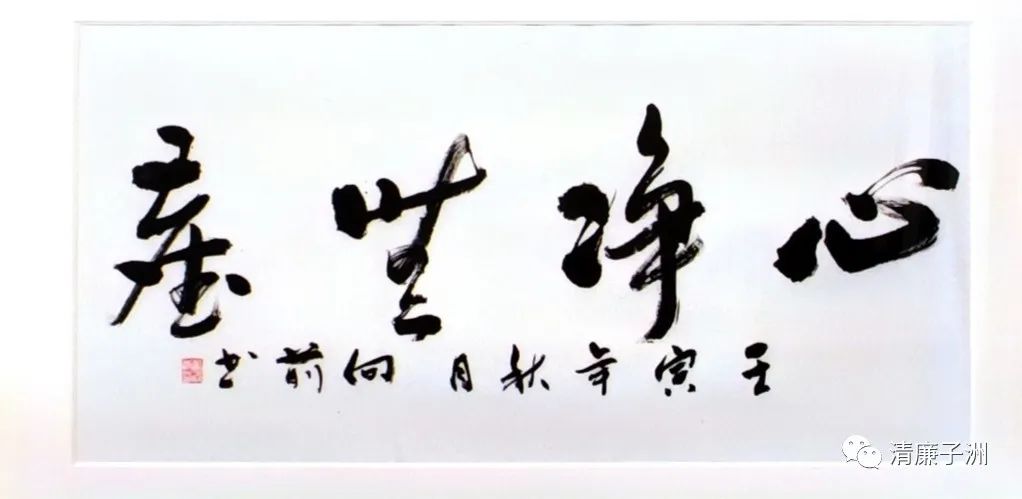 心净無塵
壬寅年秋月 向前书
清廉子洲